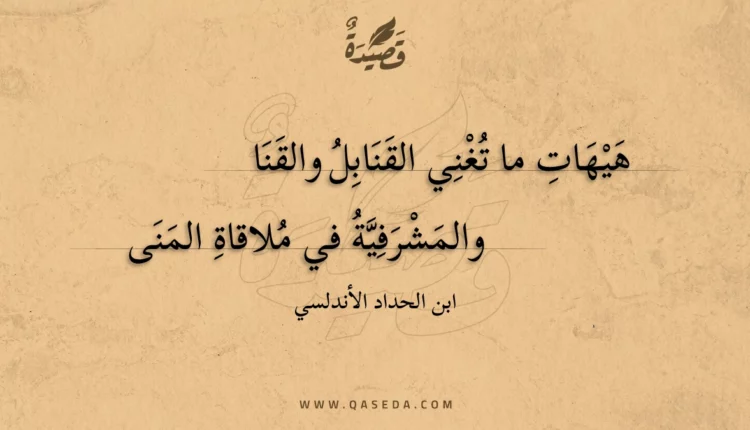 قَصِيْدَةٌ
هَيْهَاتِ ما تُغْنِي القَنَابِلُ والقَنَا
والمَشْرَفِيَّةُ في مُلاقاةِ المَنَى
ابن الحداد الأندلسي
WWW.QASEDA.COM